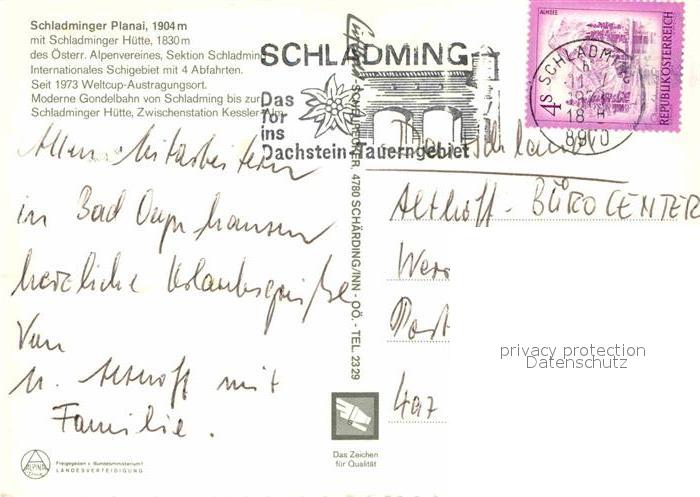 Schladminger Planai, 1904 m
mit Schladminger Hütte, 1830 m
des Österr. Alpenvereines, Sektion Schladming
Internationales Schigebiet mit 4 Abfahrten.
Seit 1973 Weltcup-Austragungsort.
Moderne Gondelbahn von Schladming bis zur
Schladminger Hütte, Zwischenstation Kessler
SCHLADMING
Das
Tor
ins
Dachstein-Tauerngebiet
ALMSEE
4S
REPUBLIK ÖSTERREICH
SCHLADMING
18
8970
Allen Mitarbeitern
in Bad Oeynhausen
herzliche Urlaubsgrüße
Von
H. Althoff mit
Familie.
4780 SCHÄRDING/INN - OÖ. - TEL. 2329
Althoff - BÜROCENTER
Werr
Post
497
privacy protection
Datenschutz
ALPINA
Freigegeben v. Bundesministerium f.
LANDESVERTEIDIGUNG
Das Zeichen
für Qualität